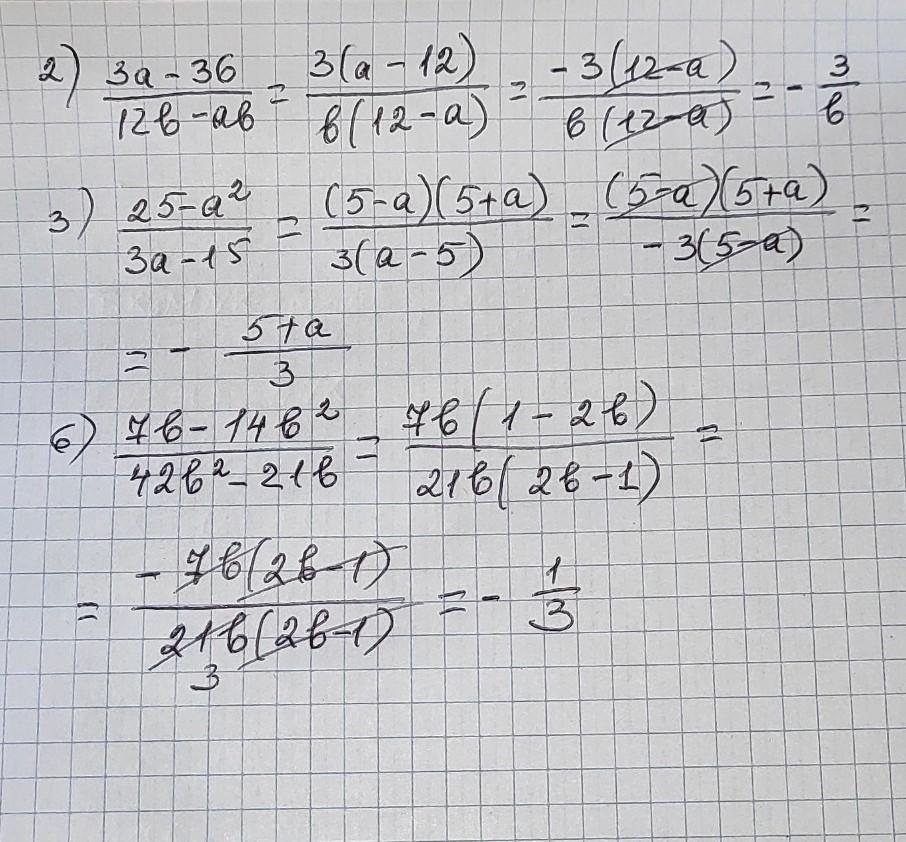 2) (3a - 36)/(12b - ab) = 3(a - 12)/b(12 - a) = -3(12 - a)/b(12 - a) = - 3/b
3) (25 - a²)/(3a - 15) = (5 - a)(5 + a)/3(a - 5) = (5 - a)(5 + a)/-3(5 - a) =
= - (5 + a)/3
6) (7b - 14b²)/(42b² - 21b) = 7b(1 - 2b)/21b(2b - 1) =
= -7b(2b - 1)/21b(2b - 1) = - 1/3
3